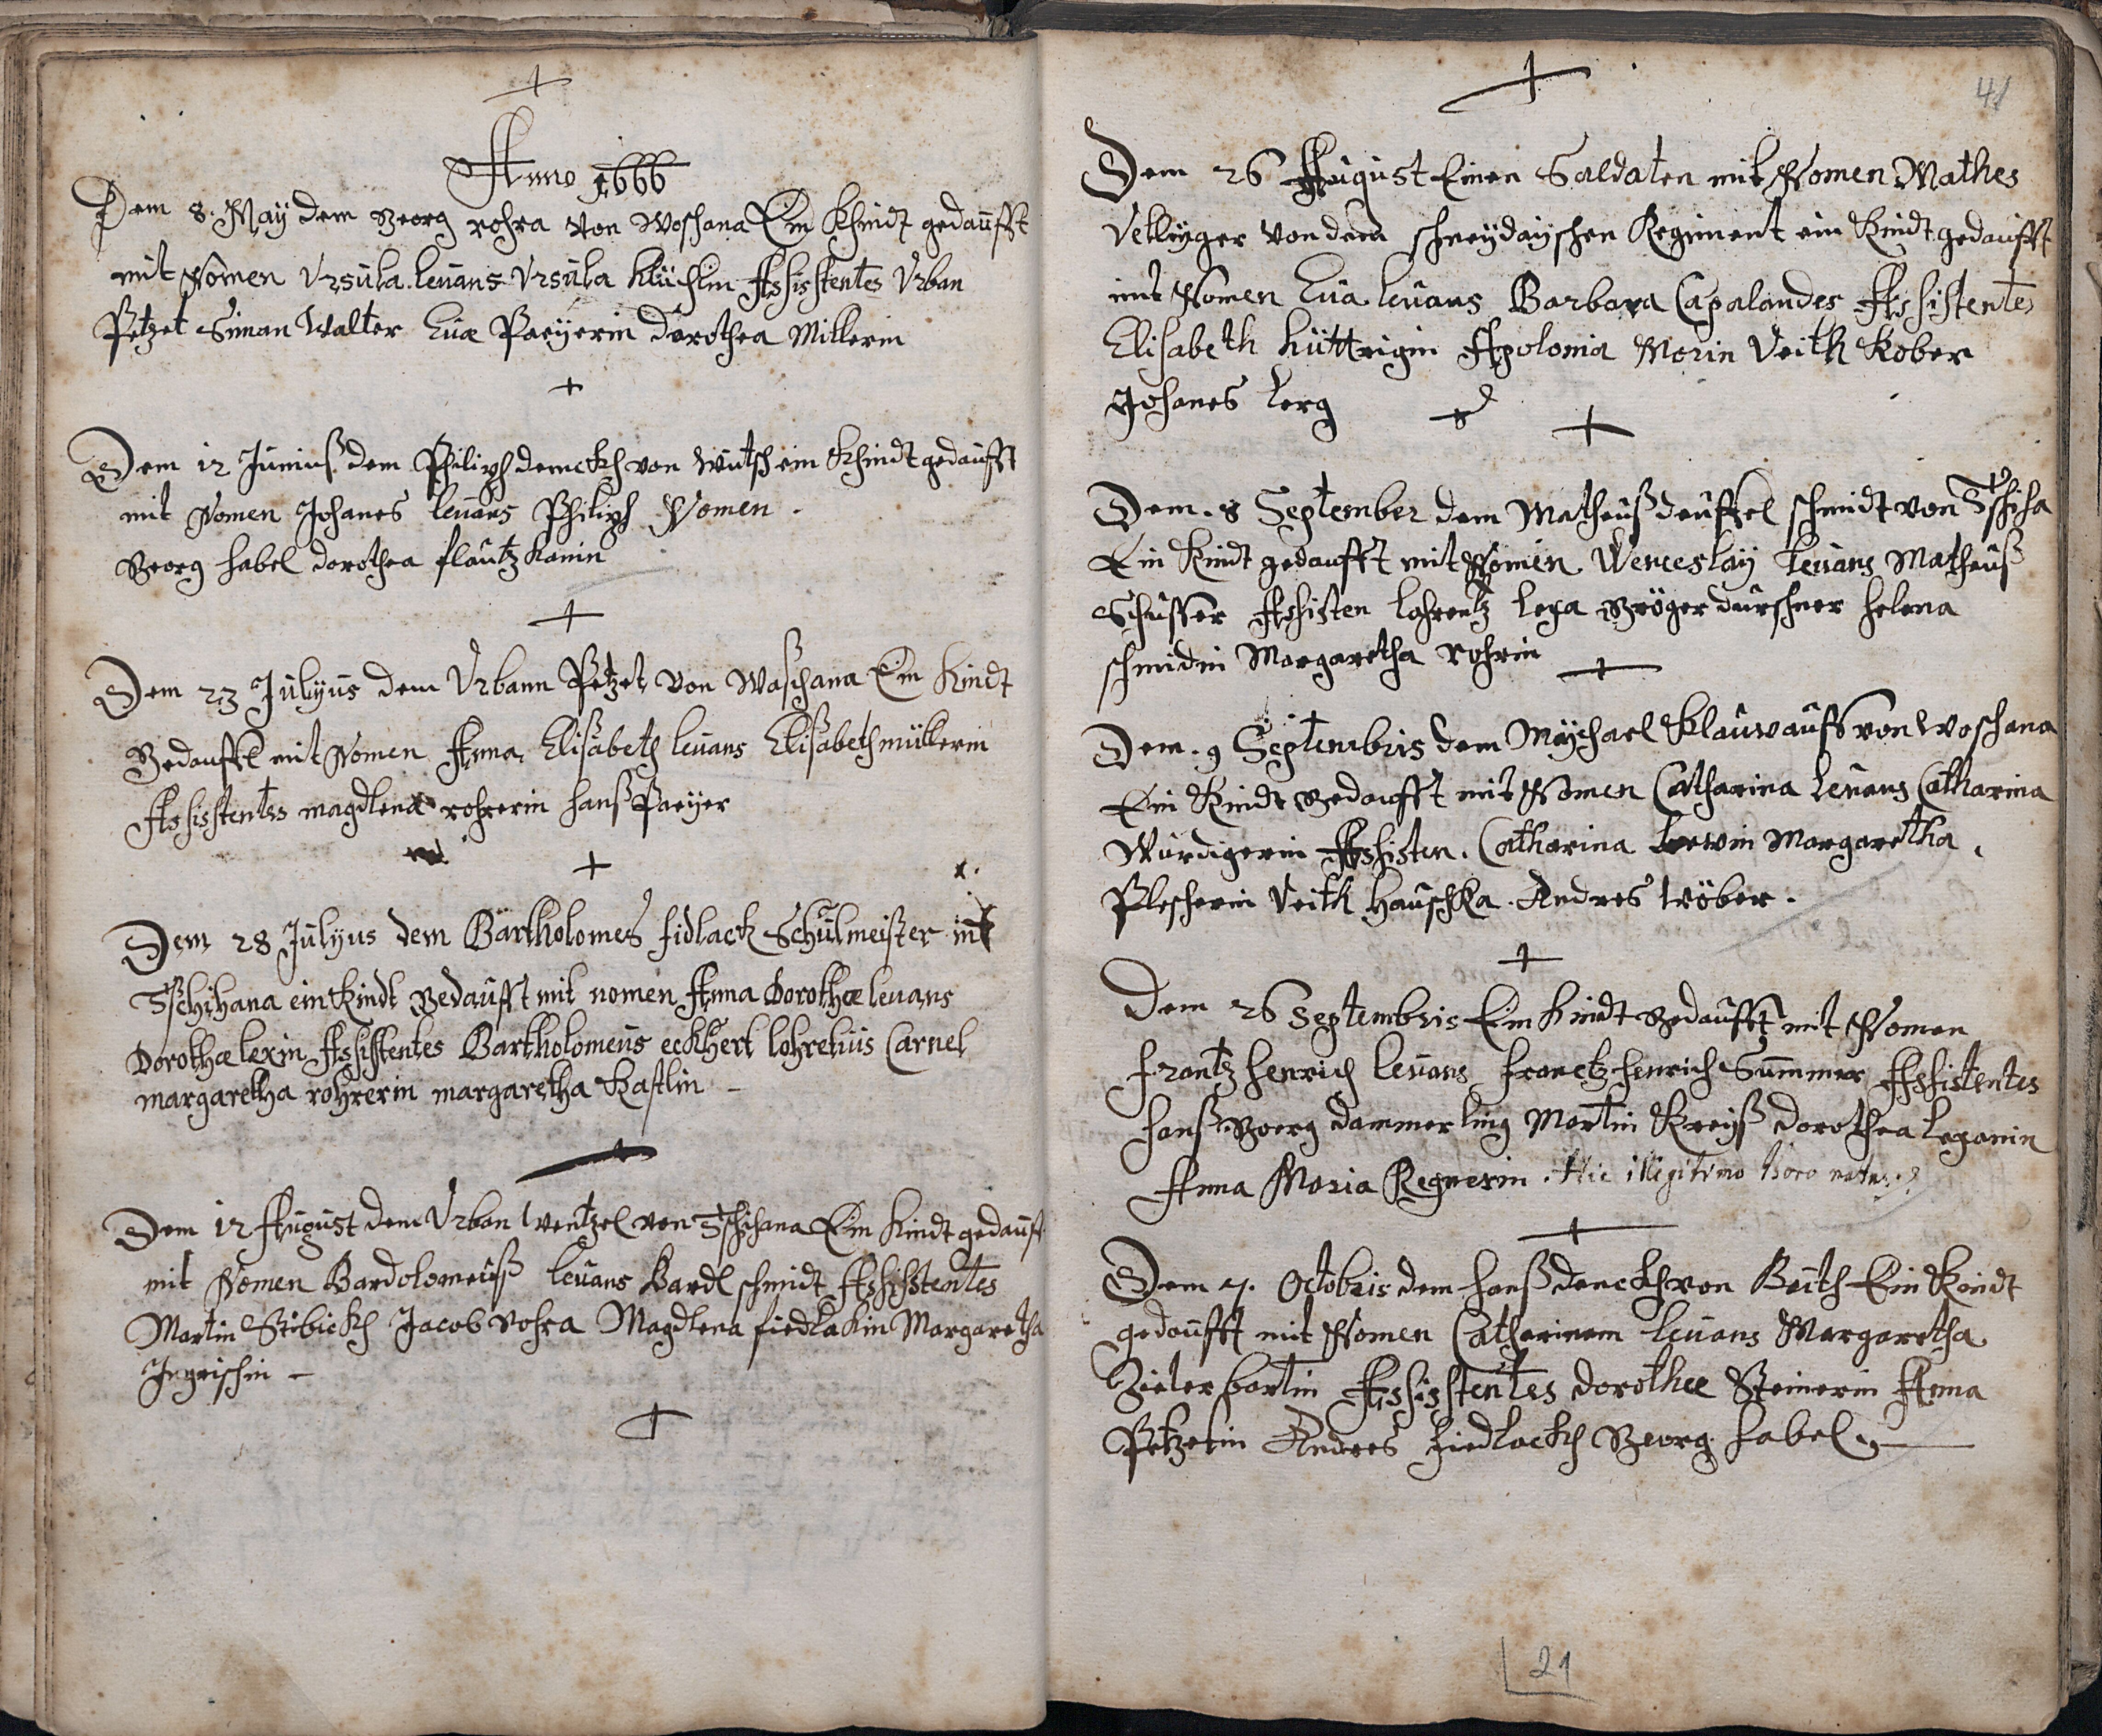 Anno 1666
Dem 8. May dem Georg rohra von Woschana Ein Khindt gedaufft
mit Nomen Vrsula. levans Vrsula Klüchlin Assisstentes Vrban
Petzet Siman Walter Eua Paeyerin Dorothea Millerin
Dem 12 Juniuß dem Philiph denckh von Wutsch ein Khindt gedaufft
mit Nomen Johanes levans Philiph Nomen.
Georg habel dorothea flautzkanin
Dem 23 Julyus dem Vrbann Petzet von Waschana Ein Kindt
Gedaufft mit Nomen Anna, Elisabeth levans Elisabeth müllerin
Assisstentes magdlena rohrerin hanß Paeyer
Dem 28 Julyus dem Bartholomes fidlack Schulmeister in
Tschihana ein Kindt Gedaufft mit nomen Anna Dorothæ levans
Dorothæ lexin Assistentes Bartholomeus eckhert lohretius Carnel
margaretha rohrerin margaretha Kastlin –
Dem 12 August dem Vrban Wentzel von Tschihana Ein Kindt gedauft
mit Nomen Bardolomeuß levans Bardl schmidt Assisstentes
Martin Stibickh Jacob rohra Magdlena fiedlakin Margaretha
Ingrischin –
41
Dem 26 August Einen Saldaten mit Nomen Mathes
von dem Regiment ein Kindt gedaufft
mit Nomen Eua levans Barbara Capalandes Assistentes
Elisabeth hüttrigin Apolonia Morin Veith Kober
Johanes lerg
Dem. 8 September dem Matheuß deuffel schmidt von
Ein Kindt gedaufft mit Nomen Wenceslaÿ levans Matheuß
Schusser Assisten lohrentz lexa durschner helena
schmidin Margaretha rohrin
Dem. 9 Septembris dem Maÿchael Klauwauff von Woschana
Ein Kindt Gedaufft mit Nomen Catharina levans Catharina
Würdigerin Assisten. Catharina Margaretha.
Plescherin Veith Hauschka. Andres Wöber.
Dem 26 Septembris Ein Kindt Gedaufft mit Nomen
frantz henrich levans frantz henrich Summer Assistentes
hanß Goerg dammerling Martin Kreyß dorothea lexanin
Anna Maria Regnerin. Hic illigitimo thoro natus.
Dem 7. Octobris dem hanß denckh von Ein Kindt
gedaufft mit Nomen Catharinam levans Margaretha
Zieterbartin Assisstentes dorothee Steinerin Anna
Petzetin Andres fiedlackh Georg habel
21